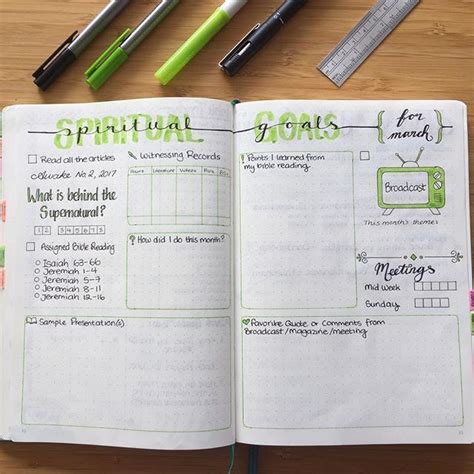 Spiritual goals
SPIRITUAL GOALS
{for march}
Read all the articles
Awake No 2, 2017
What is behind the Supernatural?
1 2 3 4 5 6 7 8
Assigned Bible Reading
Isaiah 63-66
Jeremiah 1-4
Jeremiah 5-7
Jeremiah 8-11
Jeremiah 12-16
Witnessing Records
Hours Literature Videos RVs
How did I do this month?
Sample Presentation(s)
Points I learned from
my bible reading.
Broadcast
This month's theme:
Meetings
Mid Week
Sunday
Favorite Quote or Comments from
Broadcast/magazine/meeting